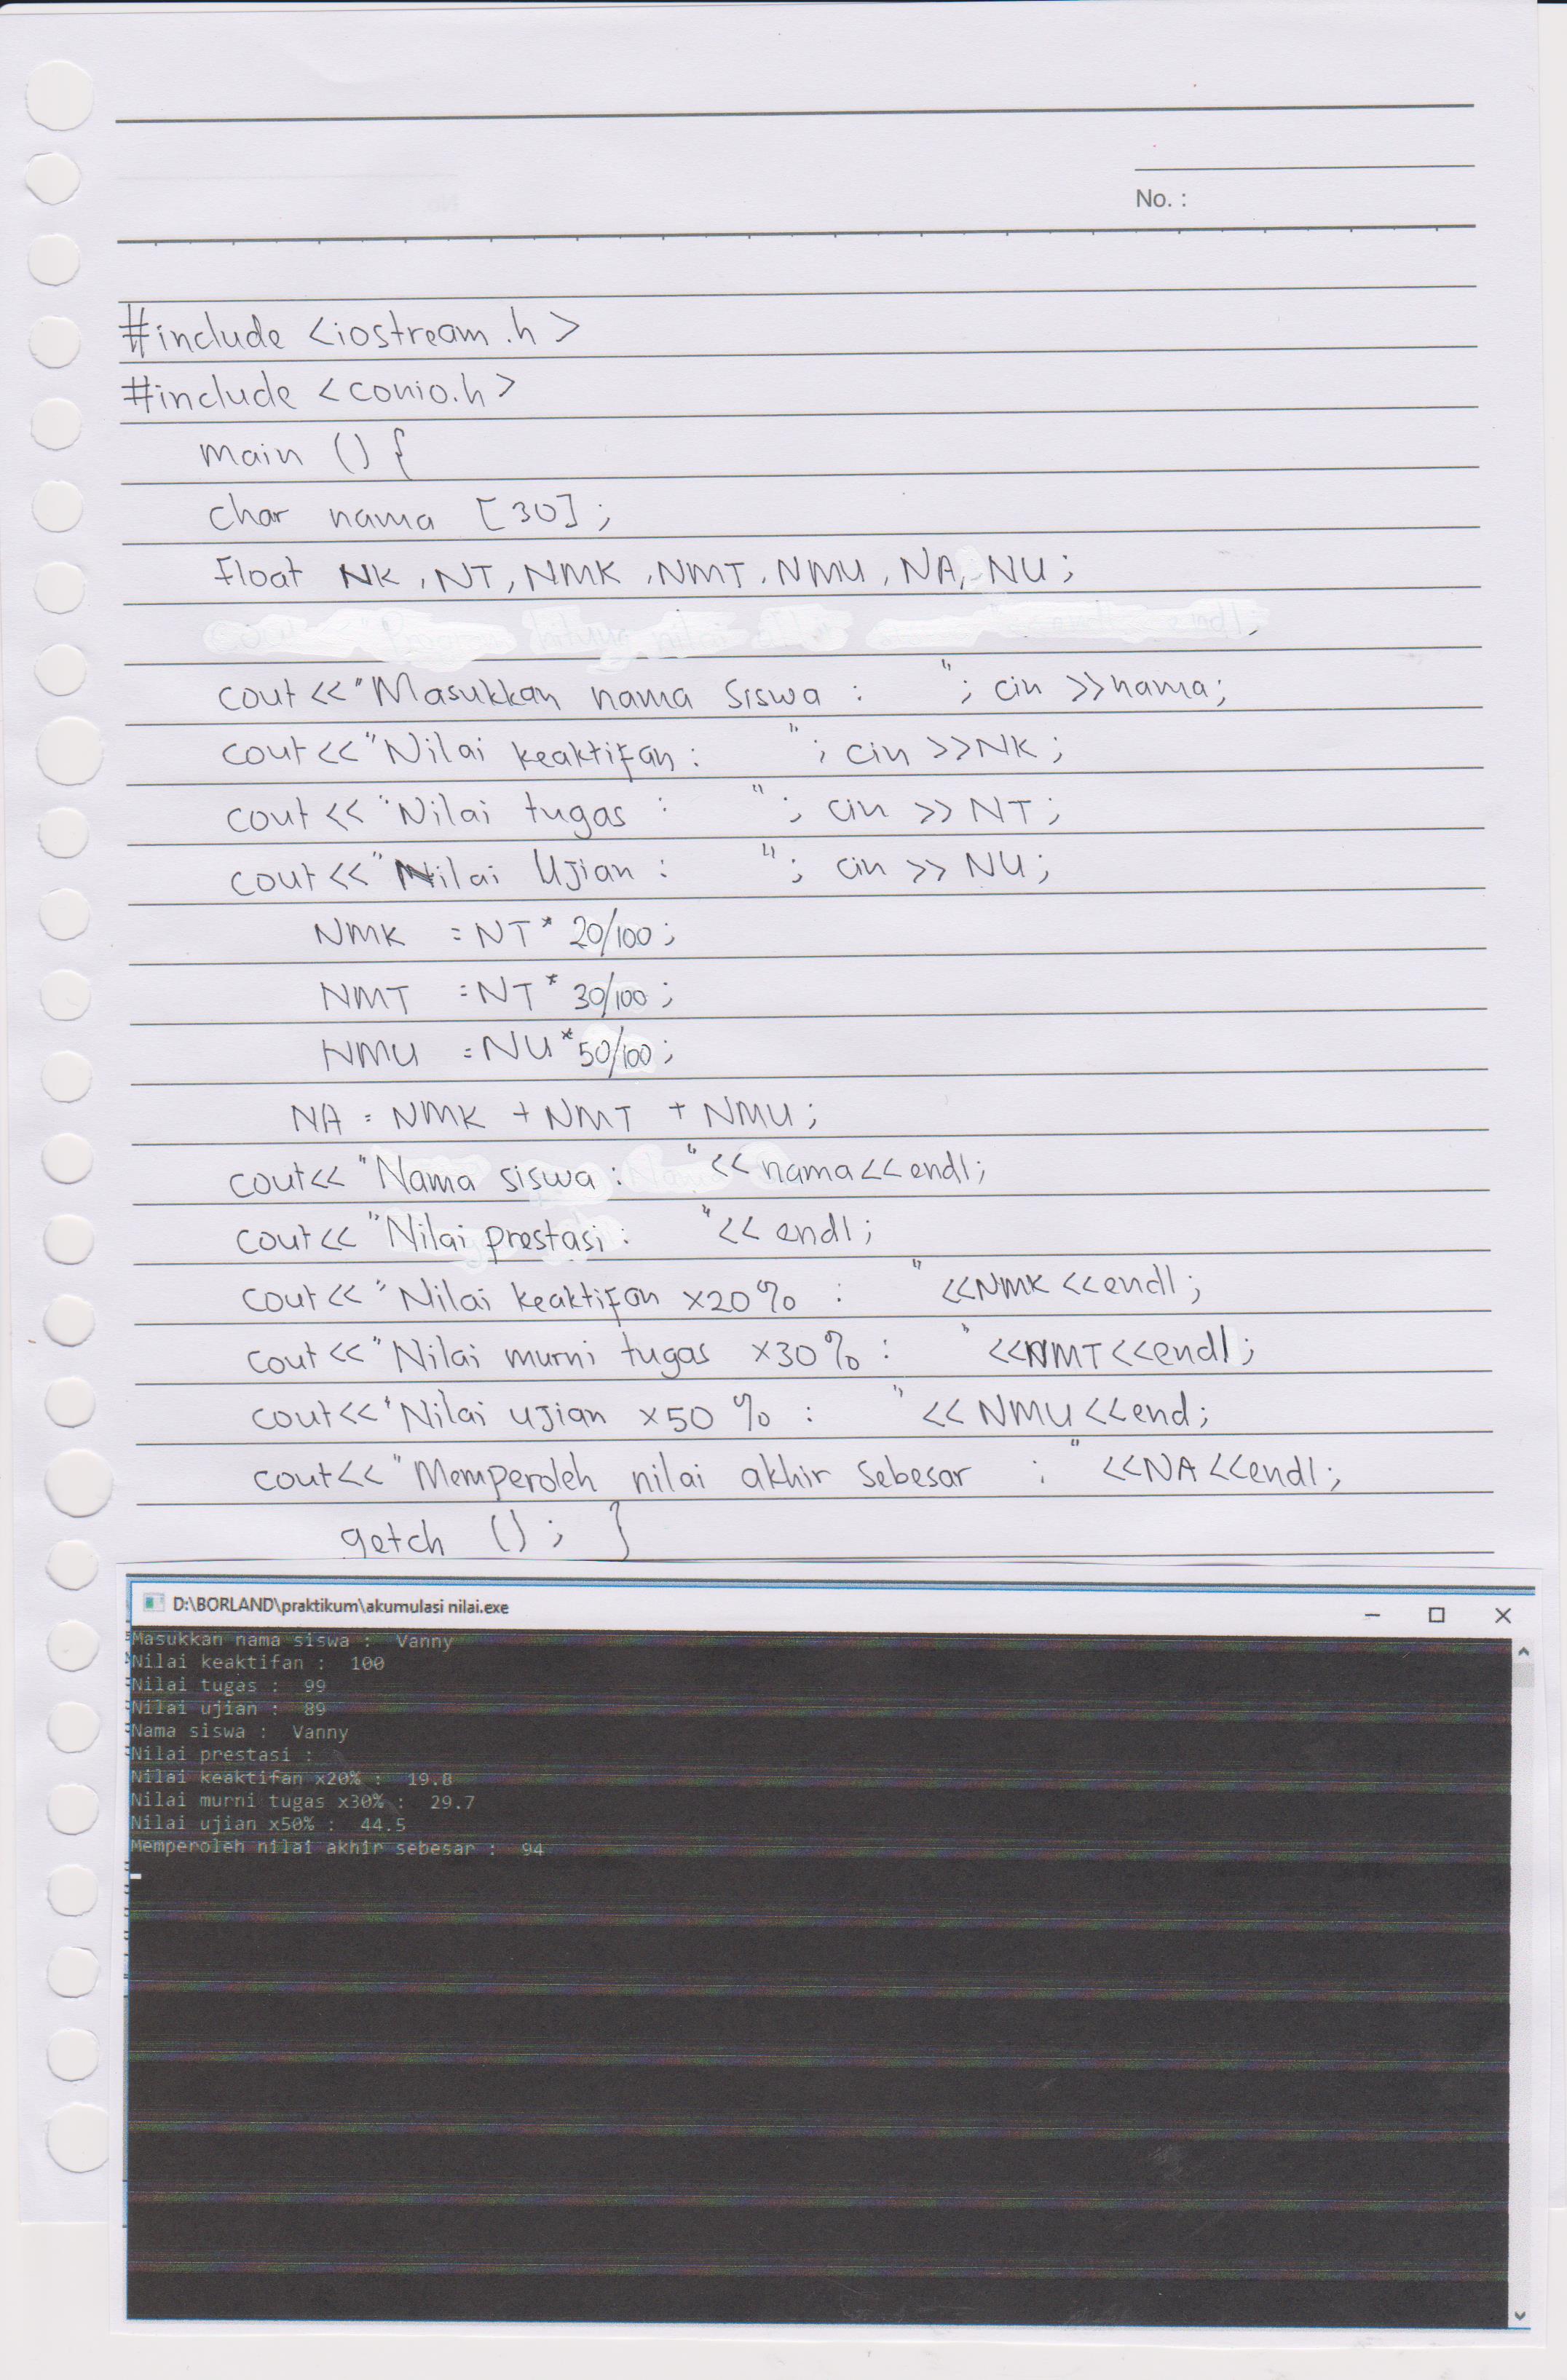 No. :
#include <iostream.h>
#include <conio.h>
main () {
char nama [30];
float NK, NT, NMK, NMT, NMU, NA, NU;
cout<<"Masukkan nama siswa : "; cin >>nama;
cout<<"Nilai keaktifan : "; cin >>NK;
cout<<"Nilai tugas : "; cin >> NT;
cout<<"Nilai Ujian : "; cin >> NU;
NMK = NT * 20/100;
NMT = NT * 30/100;
NMU = NU * 50/100;
NA = NMK + NMT + NMU;
cout<<"Nama siswa : "<<nama<<endl;
cout<<"Nilai prestasi : "<< endl;
cout<<"Nilai keaktifan x20% : "<<NMK<<endl;
cout<<"Nilai murni tugas x30% : "<<NMT<<endl;
cout<<"Nilai ujian x50 % : "<< NMU<<end;
cout<<"Memperoleh nilai akhir sebesar : "<<NA<<endl;
getch (); }
D:\BORLAND\praktikum\akumulasi nilai.exe
Masukkan nama siswa : Vanny
Nilai keaktifan : 100
Nilai tugas : 99
Nilai ujian : 89
Nama siswa : Vanny
Nilai prestasi :
Nilai keaktifan x20% : 19.8
Nilai murni tugas x30% : 29.7
Nilai ujian x50% : 44.5
Memperoleh nilai akhir sebesar : 94